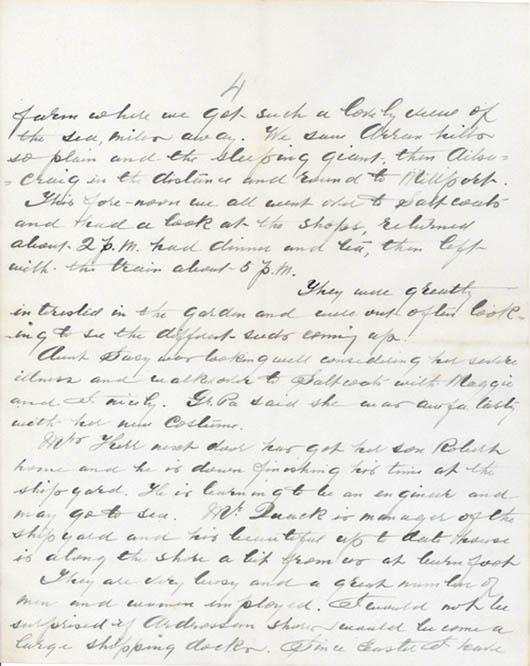 4
farm where we got such a lovely view of
the sea, miles away. We saw Arran hills
so plain and the sleeping giant, then Ailsa-
-Craig in the distance and round to Millport.
This fore-noon we all went over to Saltcoats
and had a look at the shops, returned
about 2 p.m. had dinner and tea, then left
with the train about 5 p.m.
They were greatly
intrested in the garden and were out often look-
ing to see the diffent seeds coming up.
Aunt Susy was looking well considering her severe
illness and walked over to Saltcoats with Maggie
and I nicely. Gr. Pa said she was awfu tasty
with her new Costume.
Mrs Kerr next door has got her son Robert
home and he is down finishing his time at the
ship yard. He is learning to be an engineer and
may go to sea. Mr is manager of the
shipyard and his beautiful up to date house
is along the shore a bit from us at burn foot
They are very busy and a great number of
men and women imployed. I would not be
surprised if Ardrossan shore would become a
large shipping docks. Since Easter I have